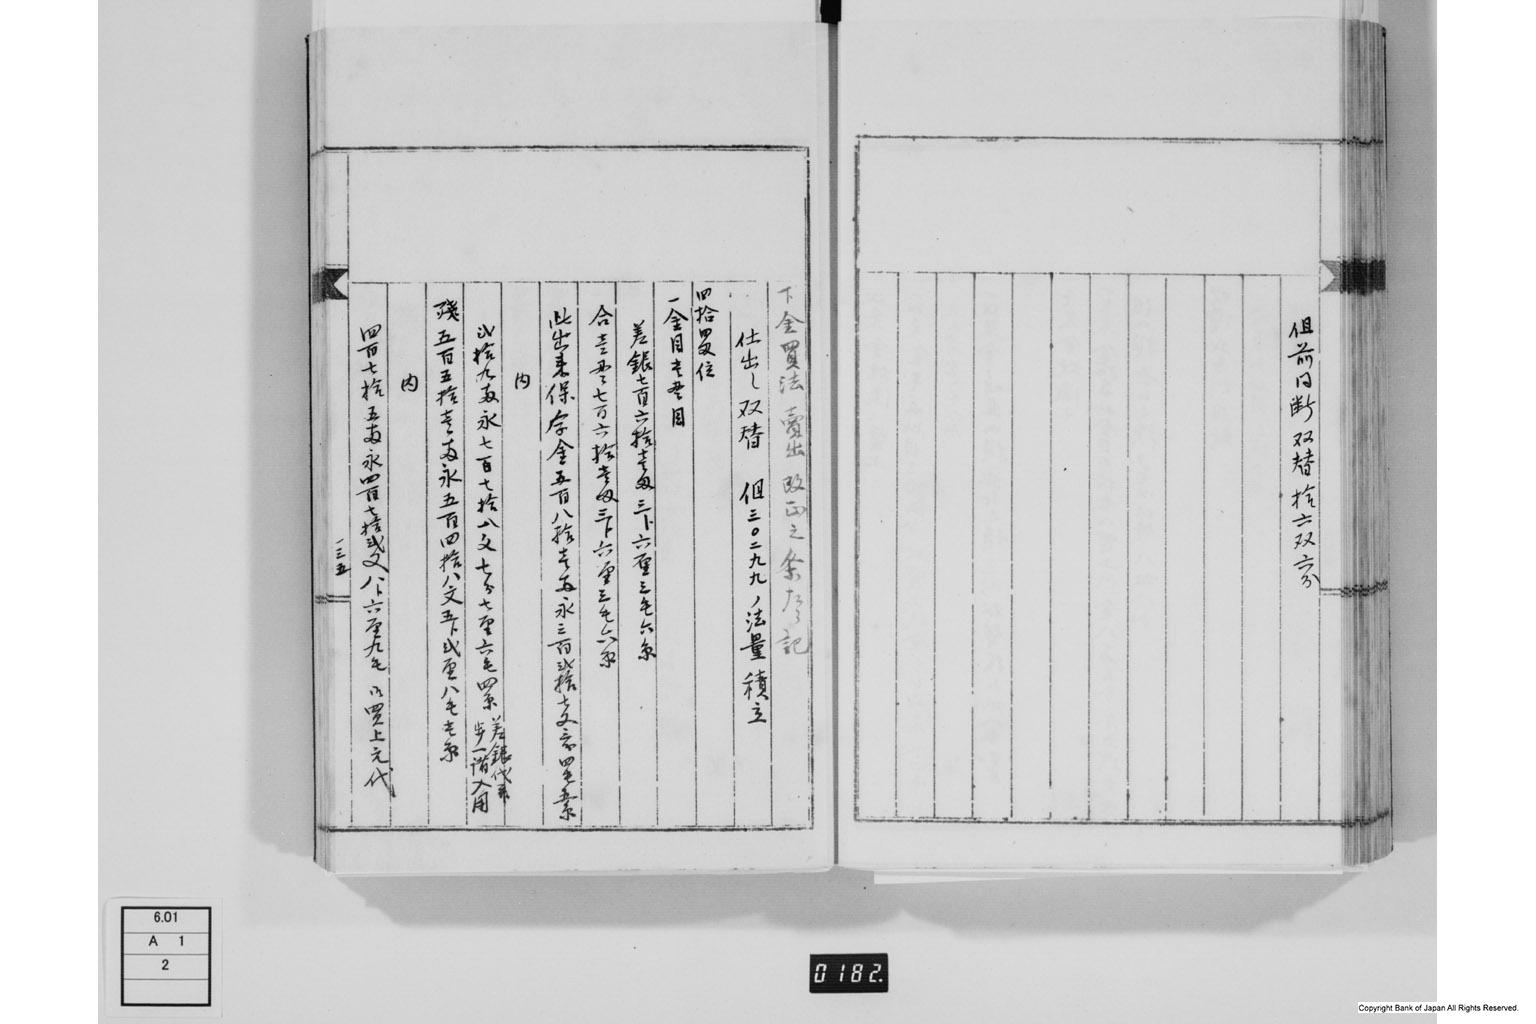 但前同断双替拾六双六分
下金買法賣出改正之条左ニ記
仕出し双替 但三〇二九九ノ法量積立
四拾四双位
一金目壱貫目
差銀七百六拾壱匁三卜六厘三毛六糸
合壱貫七百六拾壱匁三卜六厘三毛六糸
此出来保字金五百八拾壱両永三百弐拾七文六分四毛五糸
内
弐拾九両永七百七拾八文七分七厘六毛四糸
差銀代并
歩一諸入用
残五百五拾壱両永五百四拾八文五卜弐厘八毛壱糸
内
四百七拾五両永四百七拾弐文八卜六厘九毛 御買上元代
一三五
6.01
A 1
2
0182.
Copyright Bank of Japan All Rights Reserved.